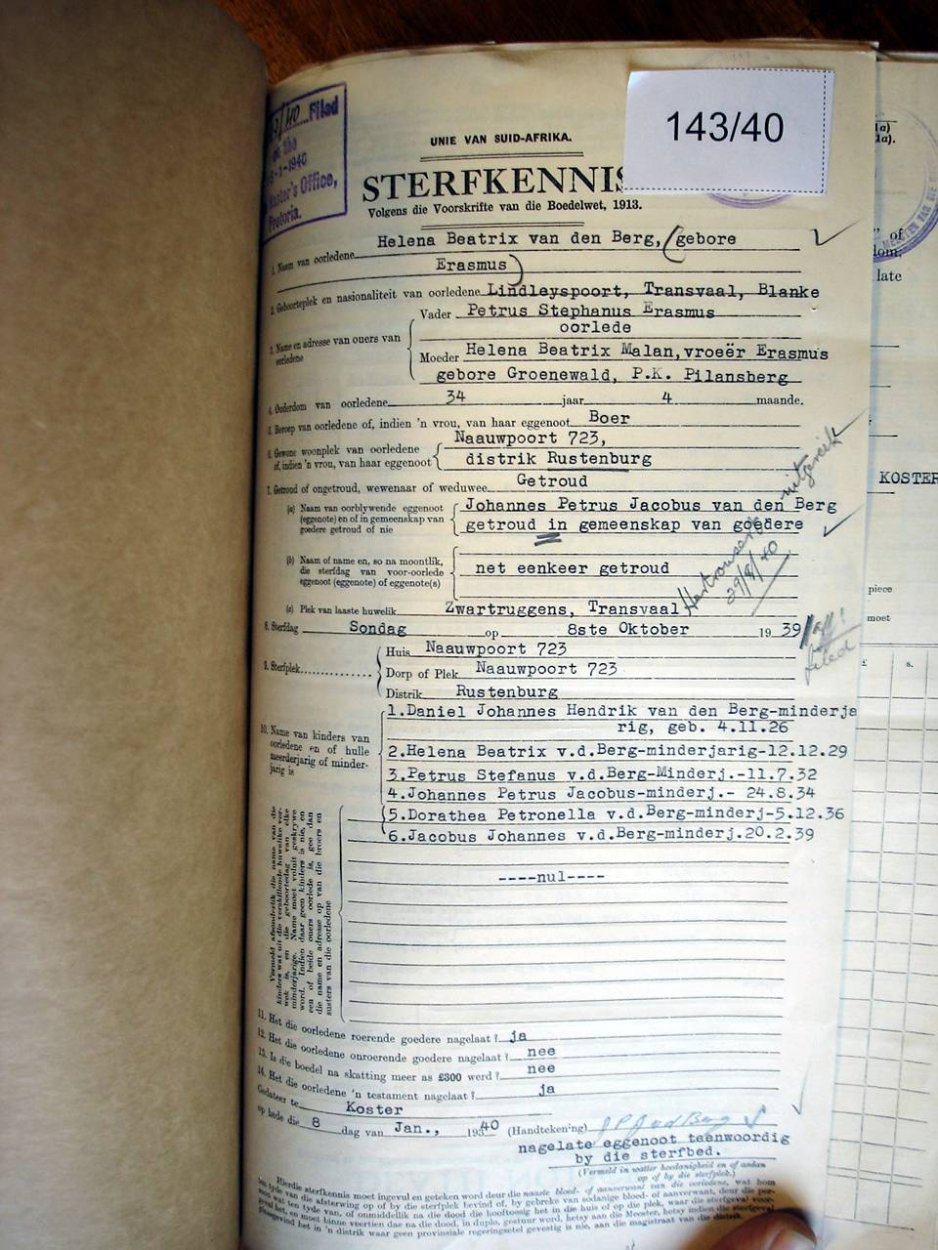 143/40
Filed
at the
-1-1940
Master's Office,
Pretoria.
UNIE VAN SUID-AFRIKA.
STERFKENNIS
Volgens die Voorskrifte van die Boedelwet, 1913.
1. Naam van oorledene Helena Beatrix van den Berg, (gebore
Erasmus)
2. Geboorteplek en nasionaliteit van oorledene Lindleyspoort, Transvaal, Blanke
3. Name en adresse van ouers van oorledene
Vader Petrus Stephanus Erasmus
oorlede
Moeder Helena Beatrix Malan, vroeër Erasmus
gebore Groenewald, P.K. Pilansberg
4. Ouderdom van oorledene 34 jaar 4 maande.
5. Beroep van oorledene of, indien 'n vrou, van haar eggenoot Boer
6. Gewone woonplek van oorledene
of, indien 'n vrou, van haar eggenoot
Naauwpoort 723,
distrik Rustenburg
7. Getroud of ongetroud, wewenaar of weduwee Getroud
(a) Naam van oorblywende eggenoot
(eggenote) en of in gemeenskap van
goedere getroud of nie
Johannes Petrus Jacobus van den Berg
getroud in gemeenskap van goedere
(b) Naam of name en, so na moontlik,
die sterfdag van voor-oorlede
eggenoot (eggenote) of eggenote(s)
net eenkeer getroud
(c) Plek van laaste huwelik Zwartruggens, Transvaal
uitgereik
29/8/40
8. Sterfdag Sondag op 8ste Oktober 19 39
filed
9. Sterfplek
Huis Naauwpoort 723
Dorp of Plek Naauwpoort 723
Distrik Rustenburg
10. Name van kinders van
oorledene en of hulle
meerderjarig of minder-
jarig is
1.Daniel Johannes Hendrik van den Berg-minderja
rig, geb. 4.11.26
2.Helena Beatrix v.d.Berg-minderjarig-12.12.29
3.Petrus Stefanus v.d.Berg-Minderj.-11.7.32
4.Johannes Petrus Jacobus-minderj.- 24.8.34
5.Dorathea Petronella v.d.Berg-minderj-5.12.36
6.Jacobus Johannes v.d.Berg-minderj.20.2.39
Vermeld afsonderlik die name van die
kinders wat uit die verskillende huwelike ver-
wek is, en die geboortedag van elke
minderjarige. Name moet voluit geskrywe
word. Indien daar geen kinders is nie, en
een of beide ouers oorlede is, gee dan
die name en adresse op van die broers en
susters van die oorledene
----nul----
11. Het die oorledene roerende goedere nagelaat? ja
12. Het die oorledene onroerende goedere nagelaat? nee
13. Is die boedel na skatting meer as £300 werd? nee
14. Het die oorledene 'n testament nagelaat? ja
Gedateer te Koster
op hede die 8 dag van Jan., 19 40 (Handtekening)
nagelate eggenoot teenwoordig
by die sterfbed.
(Vermeld in watter hoedanigheid en of aldan
op of by die sterfplek.)
Hierdie sterfkennis moet ingevul en geteken word deur die naaste bloed- of aanverwant van die oorledene, wat
" of
dom,
late
KOSTER
piece
moet
£ s.